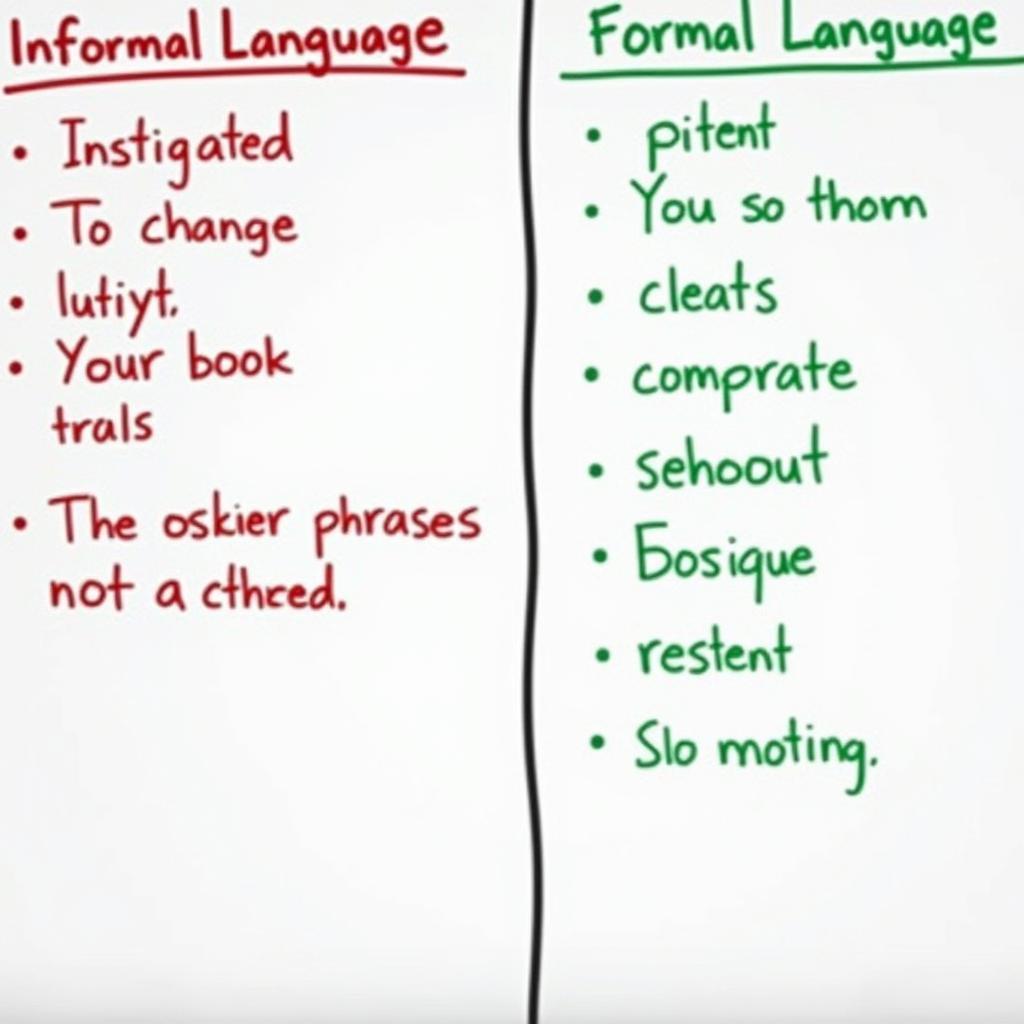 Informal Language
• Instigated
• To change
• lutiyt.
• Your book
trals
• The oskier phrases
not a cthced.
Formal Language
• pitent
• You so thom
• cleats
• comprate
• sehoout
• Bosique
• restent
• Slo moting.